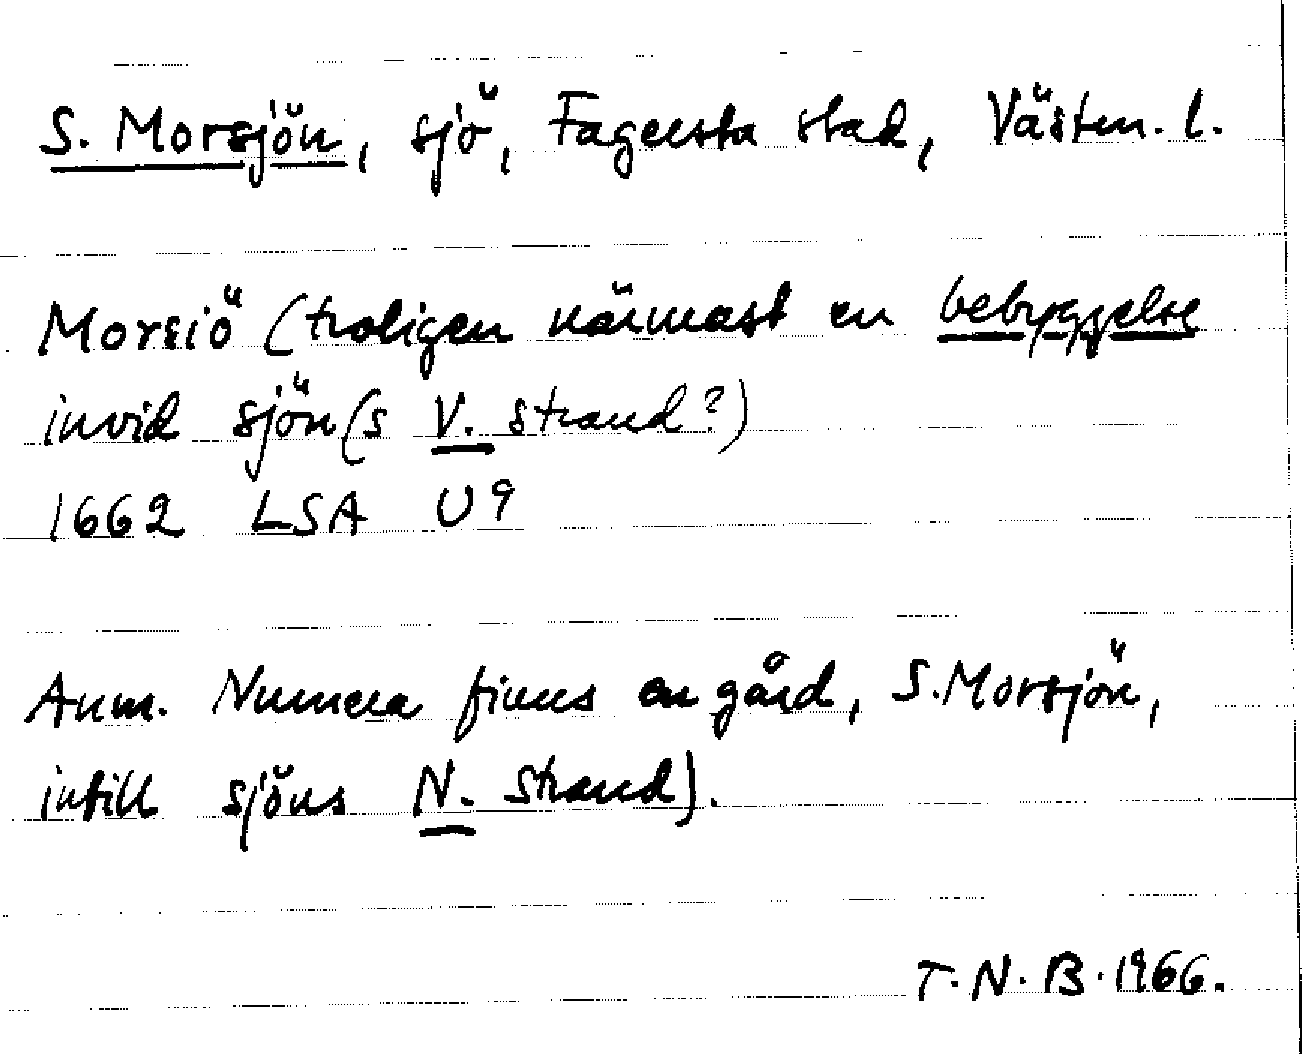 S. Morsjön, sjö, Fagersta stad, Västm. l.
Morsiö (troligen närmast en bebyggelse
invid sjön(s V. strand?)
1662 LSA U9
Anm. Numera finns en gård, S. Morsjön,
intill sjöns N. strand).
T.N.B. 1966.